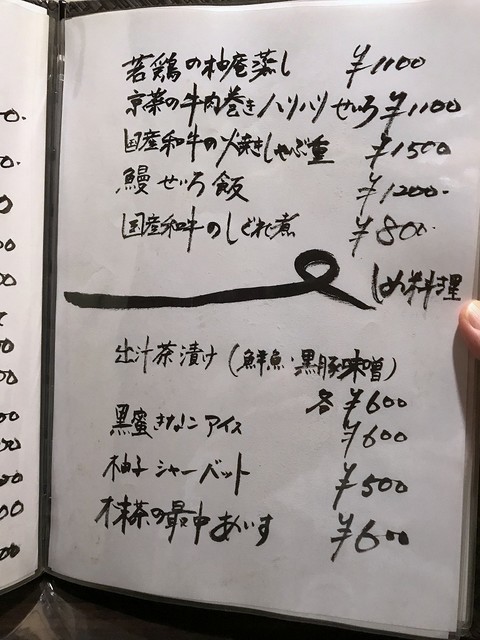 若鶏の柚庵蒸し ¥1100
京菜の牛肉巻きハリハリせいろ ¥1100
国産和牛の火焼きしゃぶ重 ¥1500
鰻せいろ飯 ¥1200-
国産和牛のしぐれ煮 ¥800-
しめ料理
出汁茶漬け(鮮魚・黒豚味噌)
各 ¥600
黒蜜きなこアイス ¥600
柚子シャーベット ¥500
抹茶の最中あいす ¥600